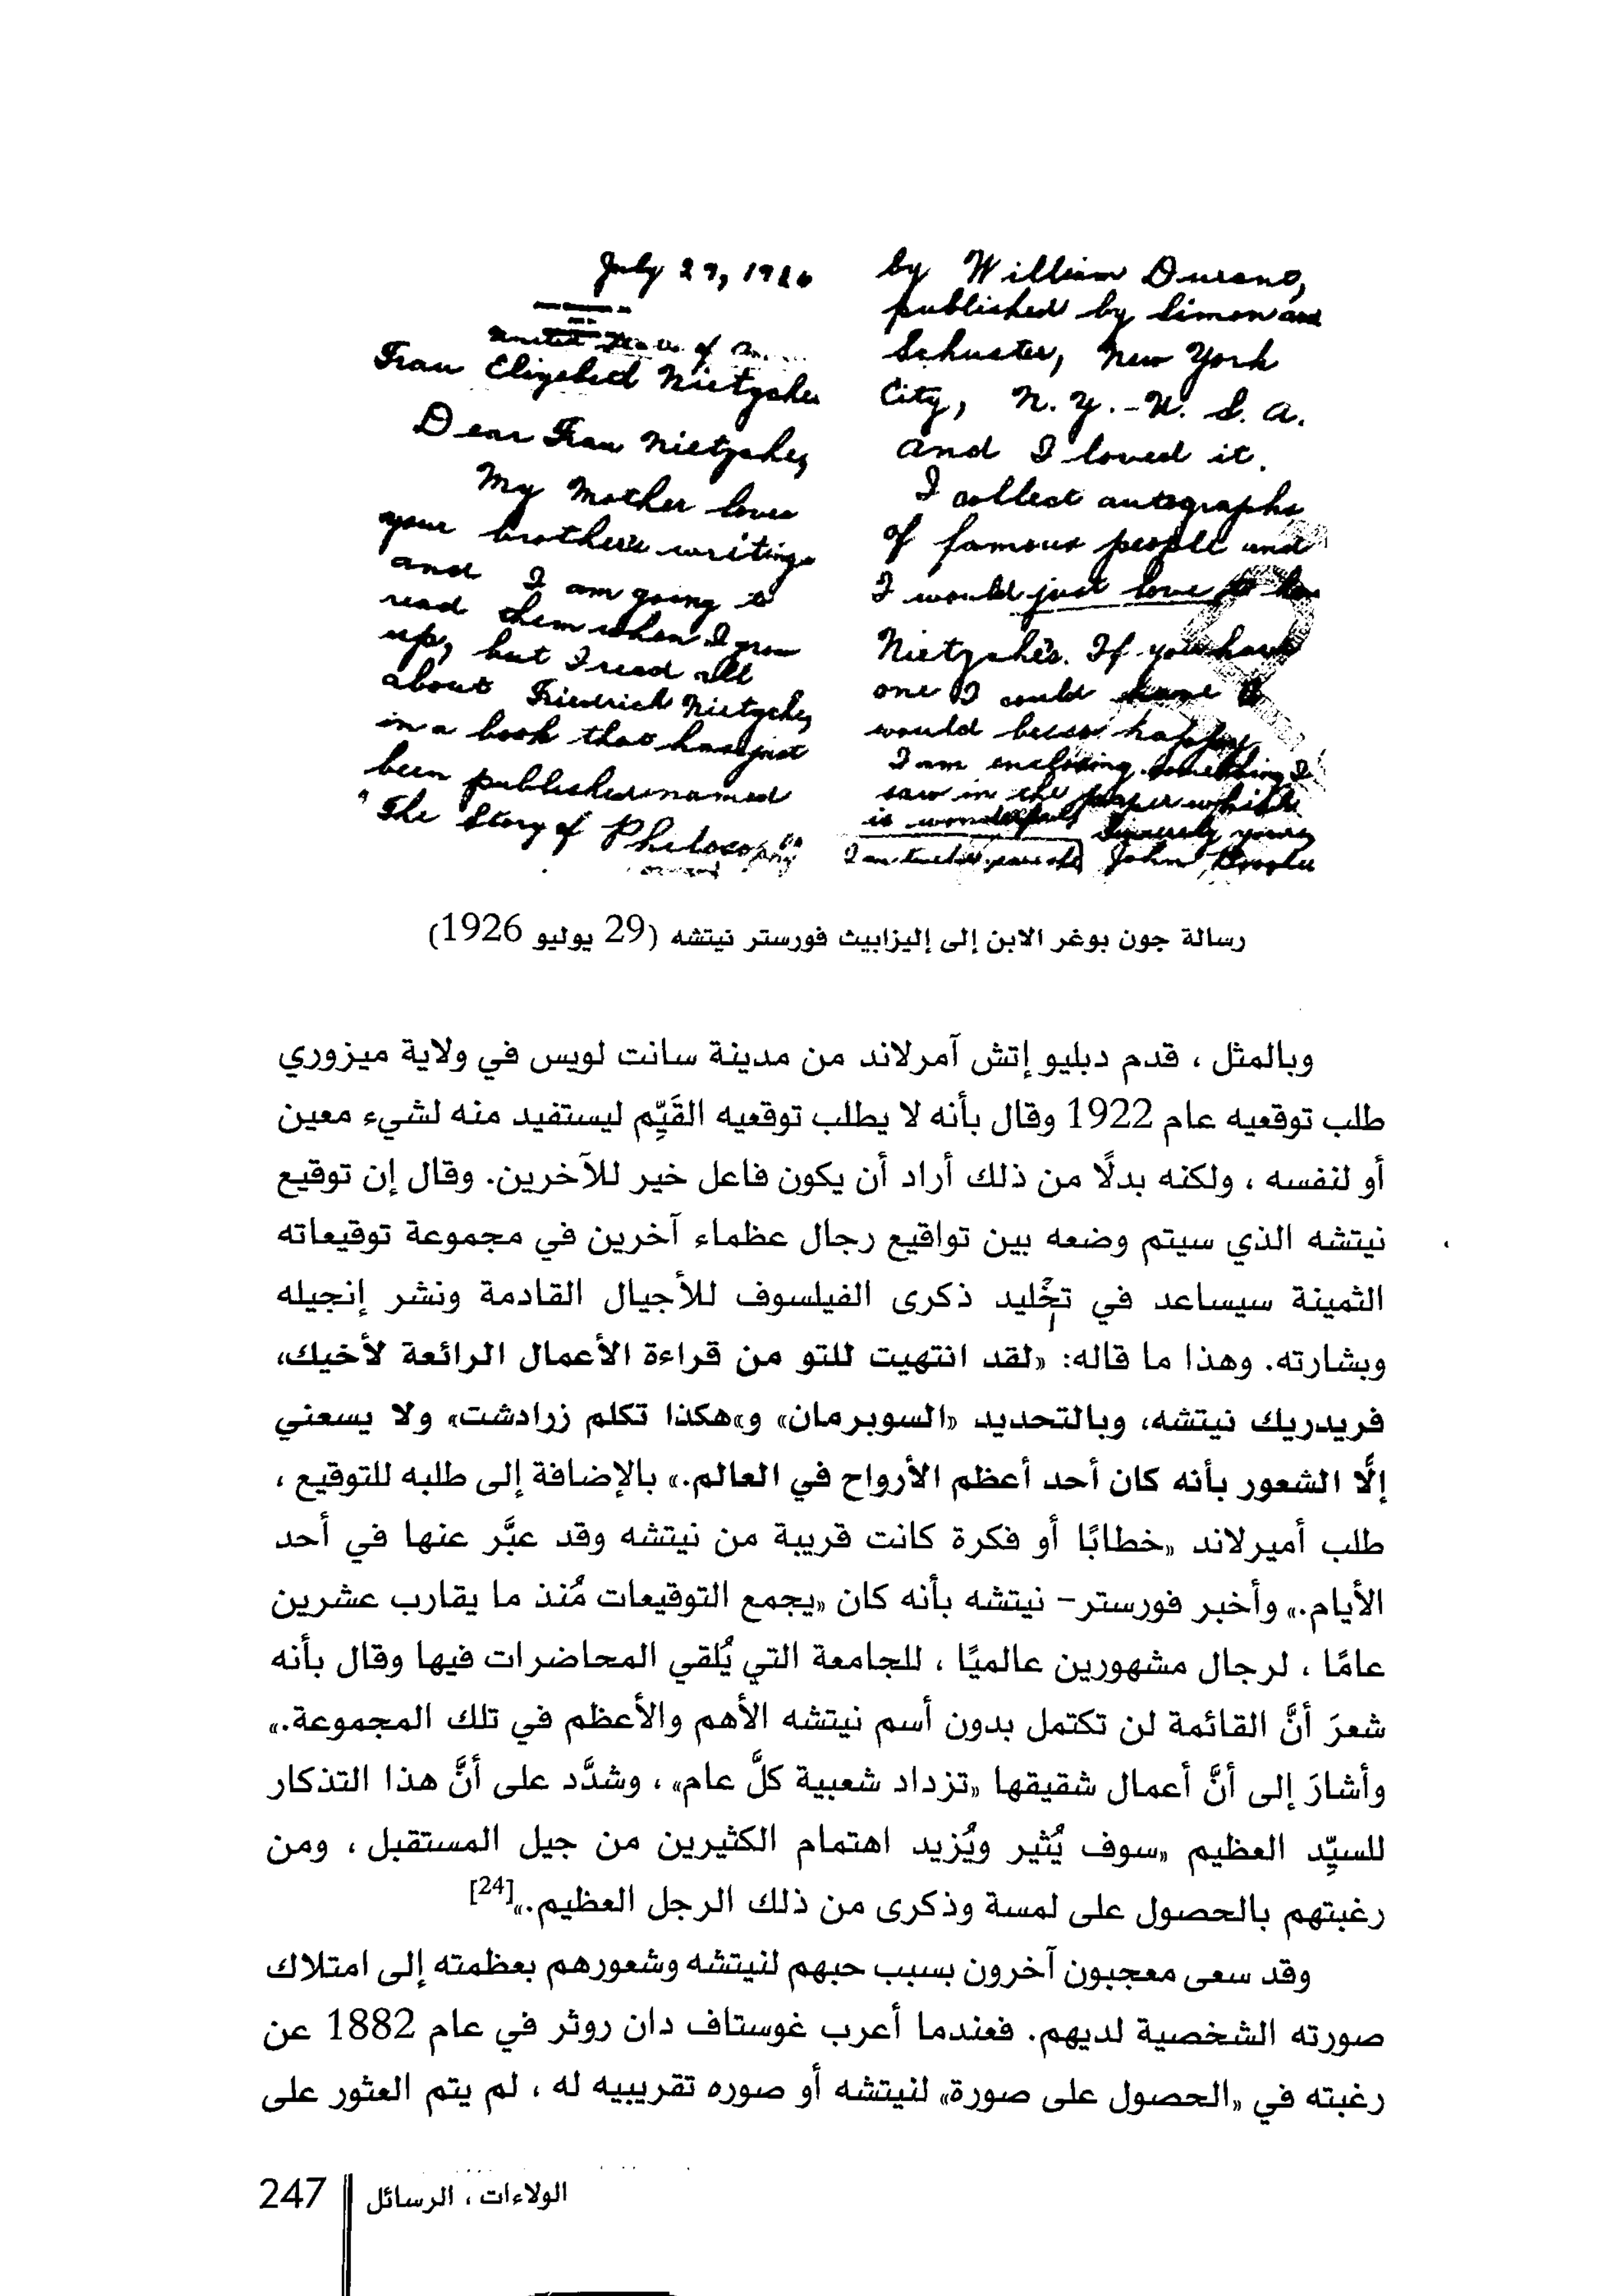 July 29, 1926
United States of
Frau Elizabed Nietzsche
Dear Frau Nietzsche,
My Mother loves
your brother's writings
and I am going to
read them when I grow
up, but I read all
about Friedrich Nietzsche,
in a book that has just
been published named
"The Story of Philosophy"
by William Durant,
published by Simon and
Schuster, New York
City, N. Y. - U. S. A.
and I loved it.
I collect autographs
of famous people and
I would just love to have
Nietzsche's. If you have
one I could have I
would be so happy.
I am enclosing something I
saw in the paper which
is wonderful. Sincerely yours,
I am twelve years old John
رسالة جون بوغر الابن إلى إليزابيث فورستر نيتشه (29 يوليو 1926)
وبالمثل ، قدم دبليو إتش آمرلاند من مدينة سانت لويس في ولاية ميزوري
طلب توقعيه عام 1922 وقال بأنه لا يطلب توقعيه القَيِّم ليستفيد منه لشيء معين
أو لنفسه ، ولكنه بدلًا من ذلك أراد أن يكون فاعل خير للآخرين. وقال إن توقيع
نيتشه الذي سيتم وضعه بين تواقيع رجال عظماء آخرين في مجموعة توقيعاته
الثمينة سيساعد في تخليد ذكرى الفيلسوف للأجيال القادمة ونشر إنجيله
وبشارته. وهذا ما قاله: «لقد انتهيت للتو من قراءة الأعمال الرائعة لأخيك،
فريدريك نيتشه، وبالتحديد «السوبرمان» و»هكذا تكلم زرادشت» ولا يسعني
إلَّا الشعور بأنه كان أحد أعظم الأرواح في العالم.» بالإضافة إلى طلبه للتوقيع ،
طلب أميرلاند «خطابًا أو فكرة كانت قريبة من نيتشه وقد عبَّر عنها في أحد
الأيام.» وأخبر فورستر- نيتشه بأنه كان «يجمع التوقيعات مُنذ ما يقارب عشرين
عامًا ، لرجال مشهورين عالميًا ، للجامعة التي يُلقي المحاضرات فيها وقال بأنه
شعرَ أنَّ القائمة لن تكتمل بدون أسم نيتشه الأهم والأعظم في تلك المجموعة.»
وأشارَ إلى أنَّ أعمال شقيقها «تزداد شعبية كلَّ عام» ، وشدَّد على أنَّ هذا التذكار
للسيِّد العظيم «سوف يُثير ويُزيد اهتمام الكثيرين من جيل المستقبل ، ومن
رغبتهم بالحصول على لمسة وذكرى من ذلك الرجل العظيم.»[24]
وقد سعى معجبون آخرون بسبب حبهم لنيتشه وشعورهم بعظمته إلى امتلاك
صورته الشخصية لديهم. فعندما أعرب غوستاف دان روثر في عام 1882 عن
رغبته في «الحصول على صورة» لنيتشه أو صوره تقريبيه له ، لم يتم العثور على
الولاءات ، الرسائل 247